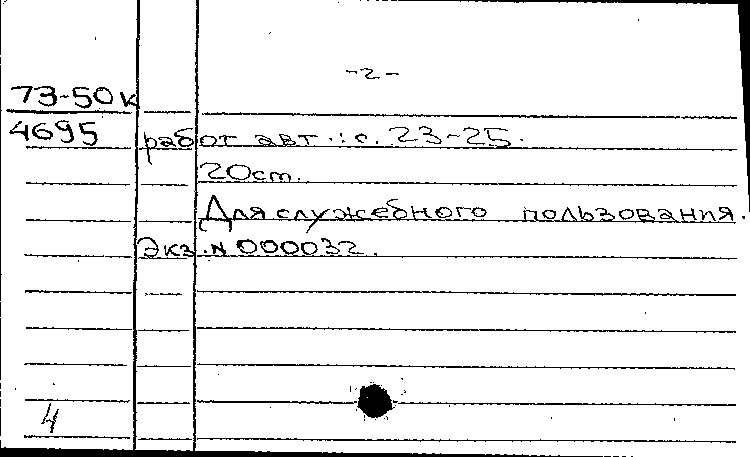 -2-
73-50к
4695 работ авт.: с. 23-25.
20см.
Для служебного пользования.
Экз.N 000032.
4